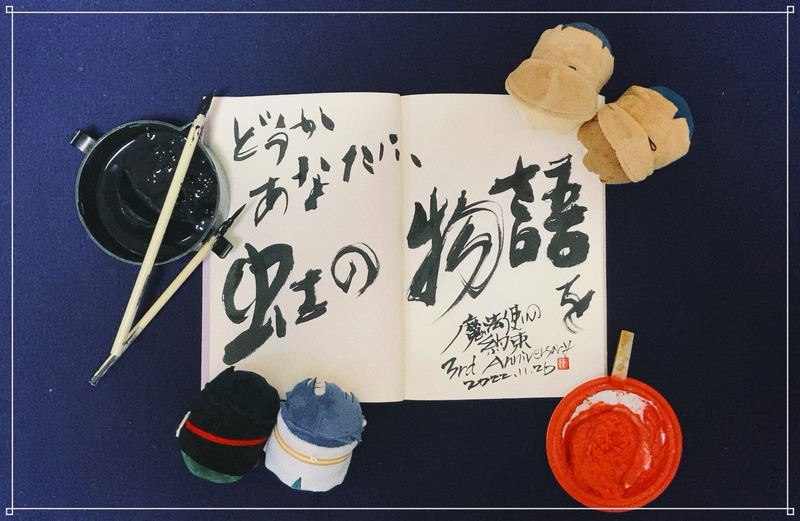 どうか
あなたに
虹の
物語
を
魔法使いの
約束
3rd Anniversary
2022.11.26